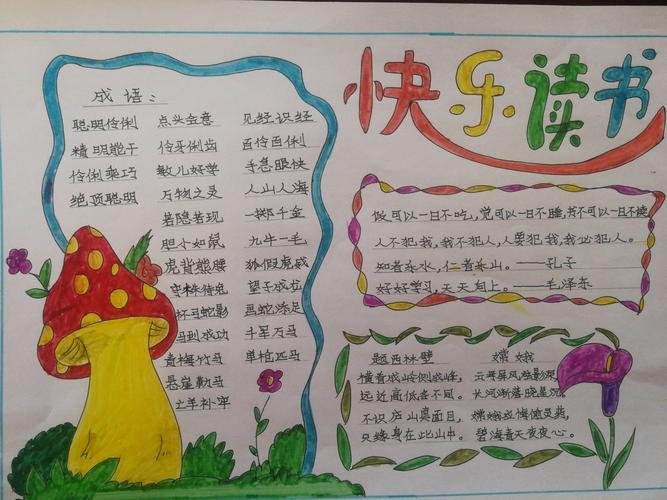 快乐读书
成语:
聪明伶俐 点头会意 见经识经
精明能干 伶牙俐齿 百伶百俐
伶俐乖巧 敏儿好学 手急眼快
绝顶聪明 万物之灵 人山人海
若隐若现 一掷千金
胆小如鼠 九牛一毛
虎背熊腰 狐假虎威
守株待兔 望子成龙
杯弓蛇影 画蛇添足
马到成功 千军万马
青梅竹马 单枪匹马
悬崖勒马
亡羊补牢
做可以一日不吃,觉可以一日不睡,书不可以一日不读
人不犯我,我不犯人,人要犯我,我必犯人。
知者乐水,仁者乐山。——孔子
好好学习,天天向上。——毛泽东
题西林壁
横看成岭侧成峰,
远近高低各不同。
不识庐山真面目,
只缘身在此山中。
嫦娥
云母屏风烛影深,
长河渐落晓星沉。
嫦娥应悔偷灵药,
碧海青天夜夜心。